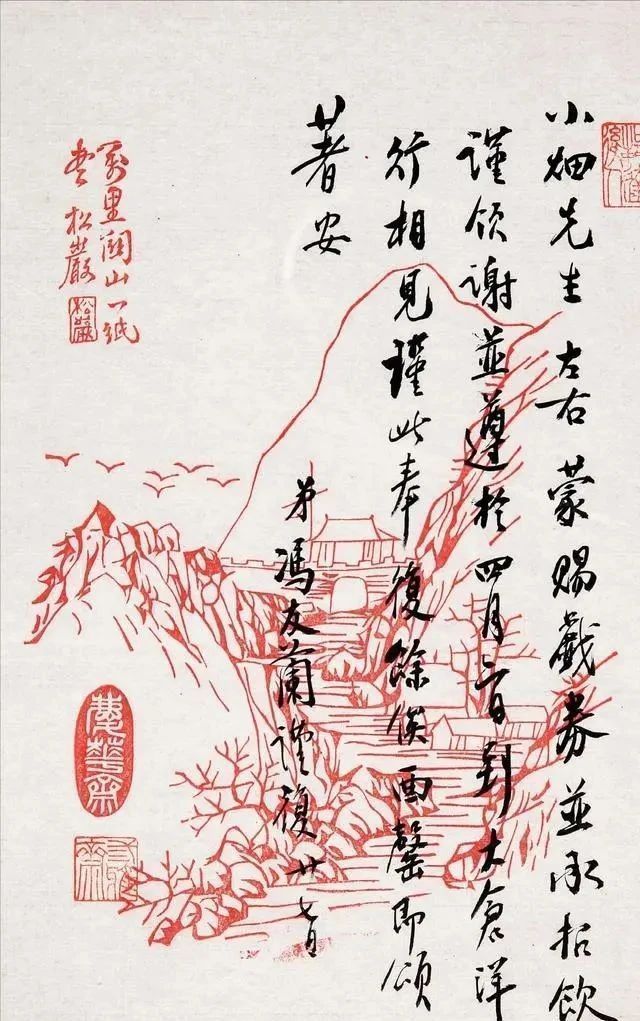 小畑先生左右蒙賜戲券並承招飲
謹領謝並遵於四月日到大倉洋
行相見謹此奉復餘俟面罄即頌
著安
弟馮友蘭謹復廿七日
萬里關山一紙
書 松巖
松巖